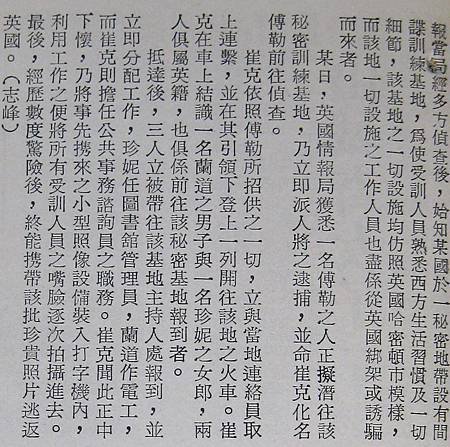 報當局經多方偵查後，始知某國於一秘密地帶設有間
諜訓練基地，爲使受訓人員熟悉西方生活習慣及一切
細節，該基地之一切設施均仿照英國哈密頓市模樣，
而該地一切設施之工作人員也盡係從英國綁架或誘騙
而來者。
某日，英國情報局獲悉一名傅勒之人正擬潛往該
秘密訓練基地，乃立即派人將之逮捕，並命崔克化名
傅勒前往偵查。
崔克依照傅勒所招供之一切，立與當地連絡員取
上連繫，並在其引領下登上一列開往該地之火車。崔
克在車上結識一名蘭道之男子與一名珍妮之女郎，兩
人俱屬英籍，也俱係前往該秘密基地報到者。
抵達後，三人立被帶往該基地主持人處報到，並
立即分配工作，珍妮任圖書館管理員，蘭道作電工，
而崔克則擔任公共事務諮詢員之職務。崔克聞此正中
下懷，乃將事先携來之小型照像設備裝入打字機內，
利用工作之便將所有受訓人員之嘴臉逐次拍攝進去。
最後，經歷數度驚險後，終能携帶該批珍貴照片逃返
英國。（志峰）